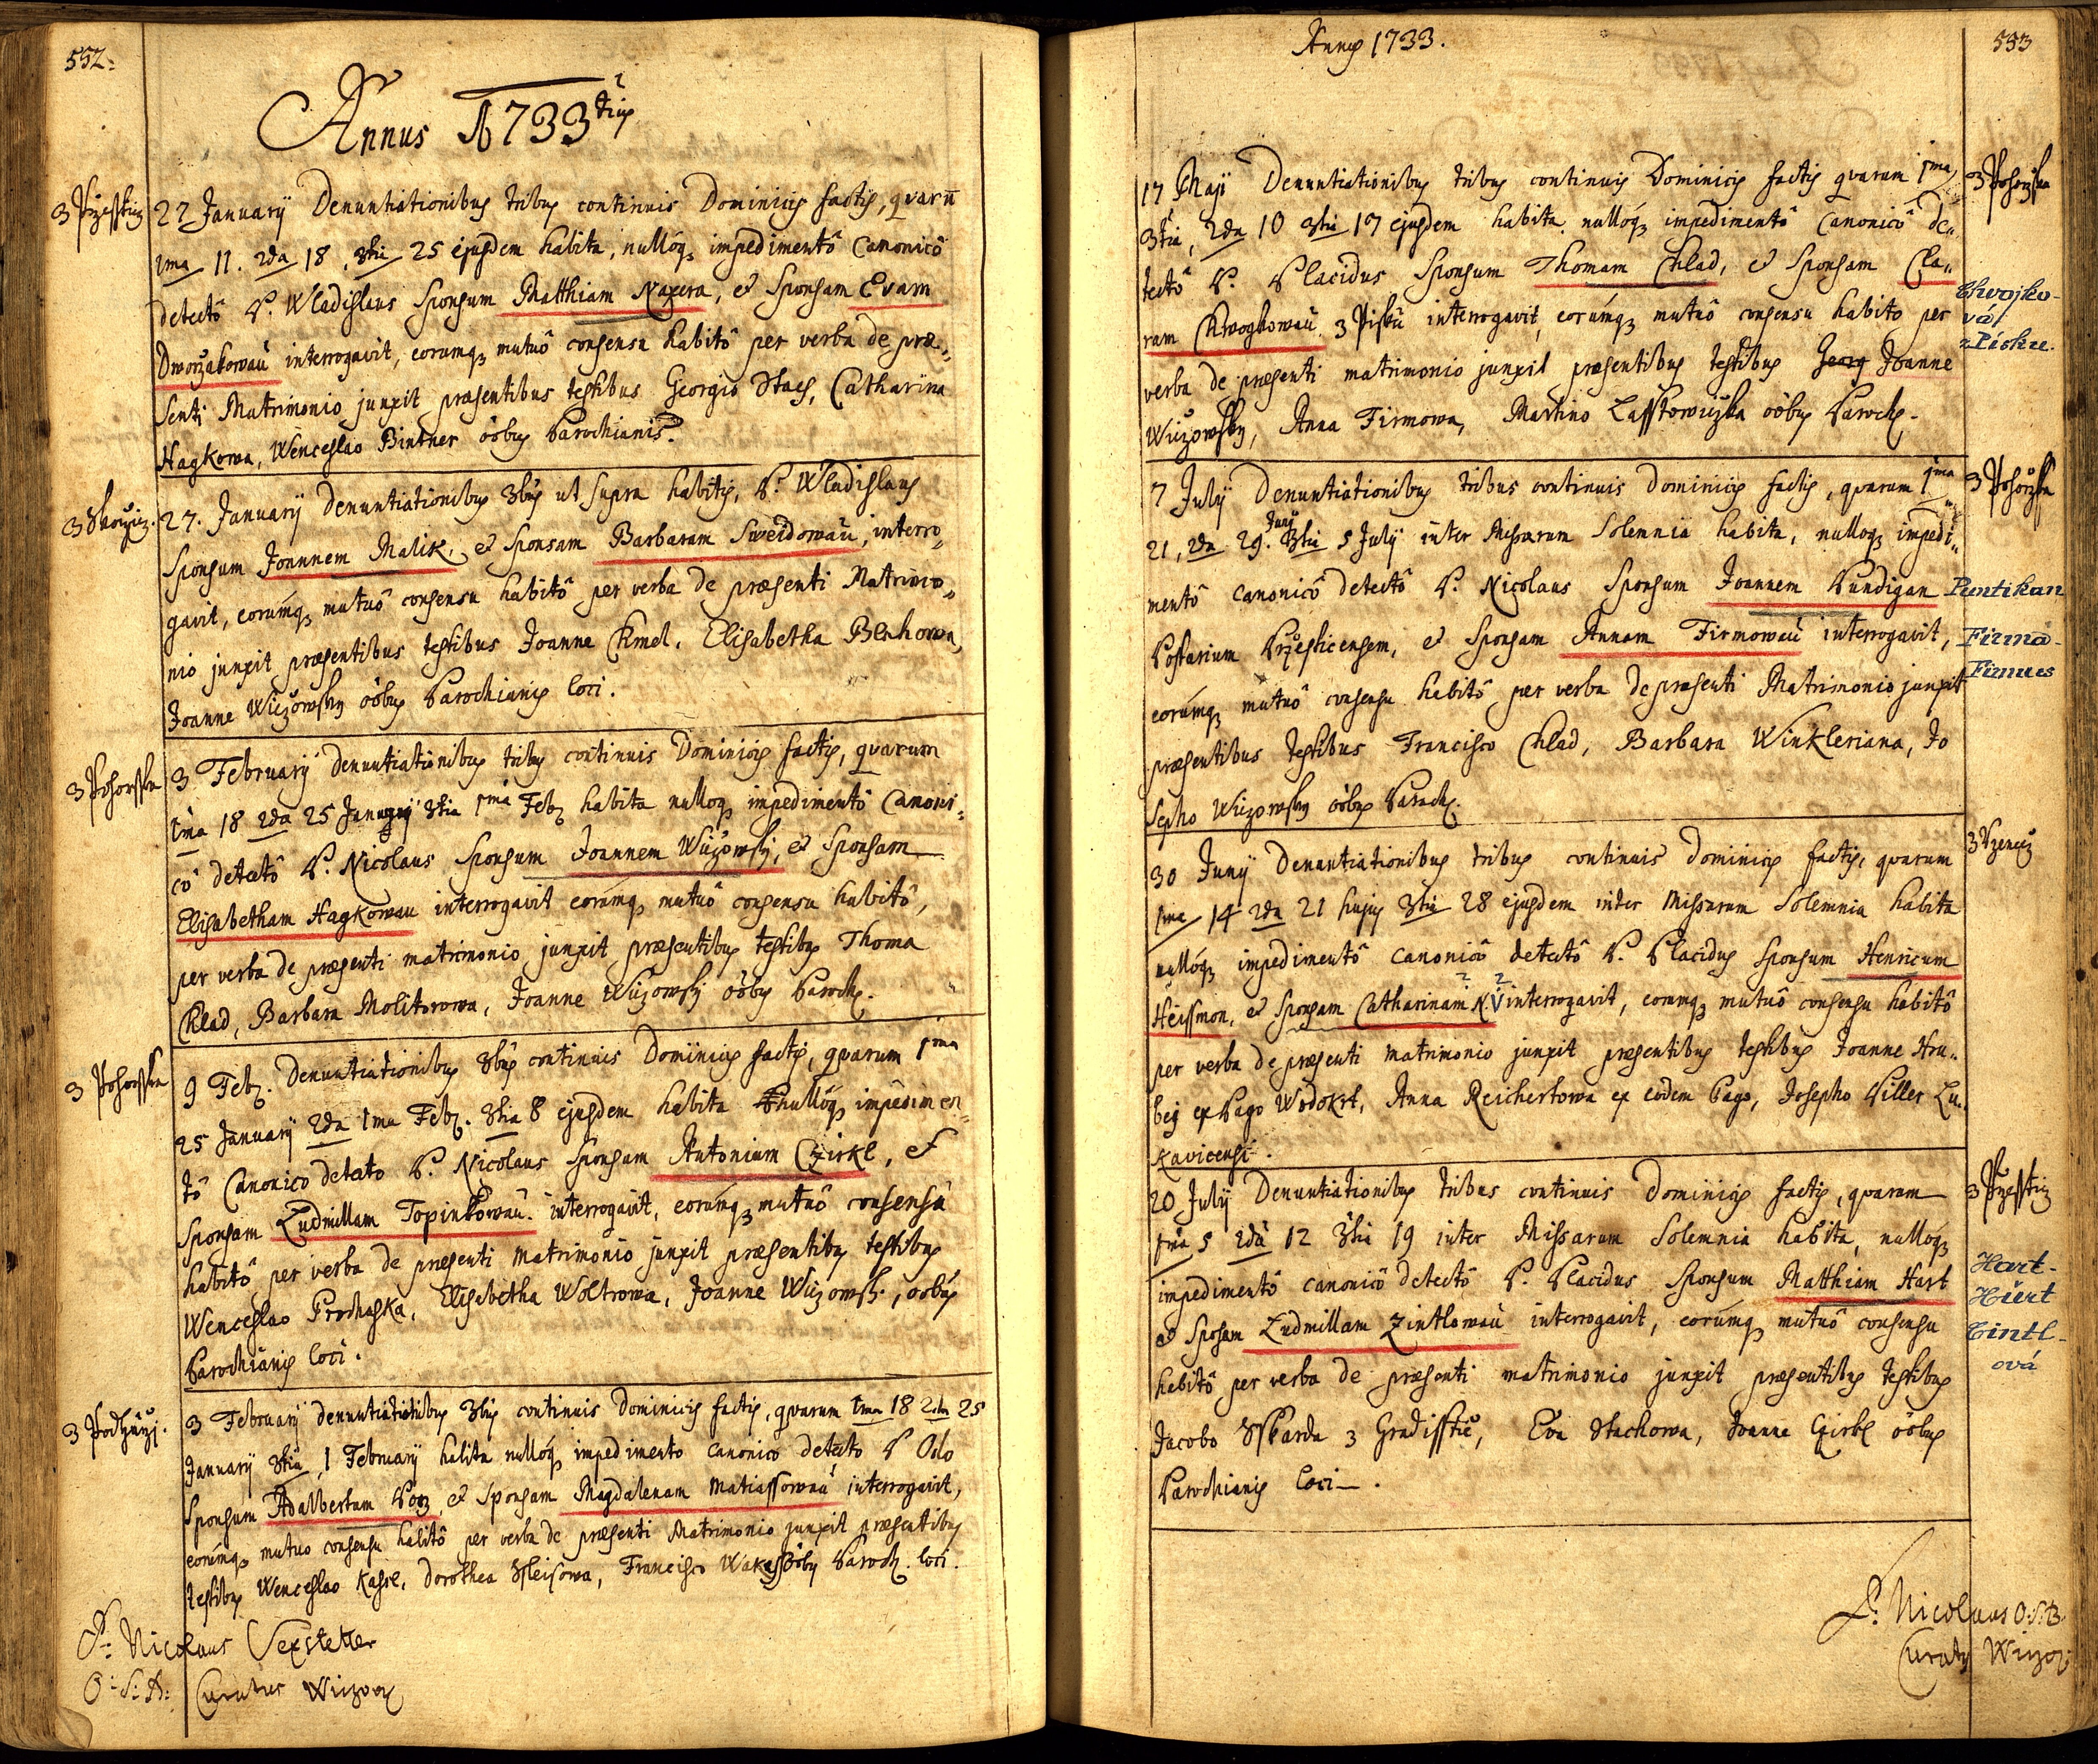 552.
Annus 1733tiq
3 Przesstiz
22 Januarij Denuntiationibus tribus continuis Dominicis factis, qvarū
1ma 11. 2da 18, 3tia 25 ejusdem habita, nullóq impedimentô Canonicô
detectô P. Wladislaus Sponsum Matthiam Naxera, et Sponsam Evam
Dworzakowau interrogavit, eorumq mutuô consensu habitô per verba de præ„
senti Matrimonio junxit præsentibus testibus Georgio Stach, Catharina
Hagkowa, Wenceslao Bintner oôbus Parochianis.
27. Januarij denuntiationibus 3bus ut supra habitis, P. Wladislaus
Sponsum Joannem Malik, et Sponsam Barbaram Sweidowau, interro„
gavit, eorúmq mutuô consensu habitô per verba de præsenti Matrimo„
nio junxit præsentibus testibus Joanne Chmel, Elisabetha Blahowa,
Joanne Wiczowsky oôbus Parochianis loci.
3 Pohorska
3 February denuntiationibus tribus continuis Dominicis factis, qvarum
1ma 18 2da 25 January 3tia 1ma Feb habita nulloq impedimentô Canoni„
cô detectô P. Nicolaus Sponsum Joannem Wiczowsky, et Sponsam
Elisabetham Hagkowau interrogavit eorúmq mutuô consensu habitô,
per verba de præsenti matrimonio junxit præsentibus testibus Thoma
Chlad, Barbara Molitorowa, Joanne Wiczowsky oôbus Paroch.
3 Pohorska
9 Feb. Denuntiationibus 3bus continuis Dominicis factis, qvarum 1ma
25 January 2da 1ma Feb. 3tia 8 ejusdem habita nullóq impedimen„
tô Canonico detecto P. Nicolaus Sponsum Antonium Czirkl, et
Sponsam Ludmillam Topinkowau. interrogavit, eorúmq mutuô consensû
habitô per verba de præsenti matrimonio junxit præsentibus testibus
Wenceslao Prochaska, Elisabetha Woltrowa, Joanne Wiczowsk., oobus
Parochianis loci.
3 February denuntiationibus 3bus continuis Dominicis factis, qvarum 1ma 18 2da 25
January 3tia 1 February habita nullóq impedimento canonico detecto P Odo
Sponsum Adalbertum et Sponsam Magdalenam Matiassowau interrogavit,
eorúmq mutuo consensu habitô per verba de præsenti Matrimonio junxit præsentibus
testibus Wenceslao Kassl, Dorothea Francisco oôbus Paroch. loci.
P. Nicolaus Sexstetter
O: S: B: Curatus Wiczow
Anno 1733.
553
3 Pohorska
17 Maji Denuntiationibus tribus continuis Dominicis factis qvarum 1ma
3tia, 2da 10 3tia 17 ejusdem habita nullóq impedimentô canonicô de„
tectô P. Placidus Sponsum Thomam Chlad, et Sponsam Cla„
ram Chwogkowau 3 Pisku interrogavit, eorúmq mutuô consensu habito per
Chvojko-
vá
z Písku.
verba de præsenti matrimonio junxit præsentibus testibus Georg Joanne
Wiczowsky, Anna Firmowa, Martino Lasstowiczka oôbus Paroch.
3 Pohorska
7 July Denuntiationibus tribus continuis Dominicis factis, qvarum 1ma
21, 2da 29. Juny 3tia 5 July inter Missarum Solemnia habita, nulloq impedi„
mentô canonicô detectô P. Nicolaus Sponsum Joannem Pundigan
Puntikan
Postarium Przesticensem, et Sponsam Annam Firmowau interrogavit,
Firma-
Firmus
eorúmq mutuô consensu habitô per verba de præsenti Matrimonio junxit
præsentibus testibus Francisco Chlad, Barbara Winkleriana, Jo
sepho Wiczowsky oôbus Paroch.
30 Juny Denuntiationibus tribus continuis dominicis factis, qvarum
1ma 14 2da 21 hujus 3tia 28 ejusdem inter Missarum Solemnia habita
nullóq impedimentô canonicô detectô P. Placidus Sponsum Henricum
Heissmon, et Sponsam Catharinam N. V interrogavit, eorumq mutuô consensu habitô
per verba de præsenti matrimonio junxit præsentibus testibus Joanne Hru„
bej ex Pago Wodokrt, Anna Reichertowa ex eodem Pago, Josepho Piller Lu„
kavicensi.
3 Przesstiz
20 July Denuntiationibus tribus continuis dominicis factis, qvarum
1ma 5 2da 12 3tia 19 inter Missarum Solemnia habita, nullóq
impedimentô canonicô detectô P. Placidus Sponsum Matthiam Hart
et Sponsam Ludmillam Zintlowau interrogavit, eorúmq mutuô consensu
Hart-
Hiert
Cintl-
ová
habitô per verba de præsenti matrimonio junxit præsentibus testibus
Jacobo Sskarda 3 Gradisstie, Eva Stachowa, Joanne Czirkl oôbus
Parochianis loci.
P. Nicolaus O.S.B.
Curatus Wiczow